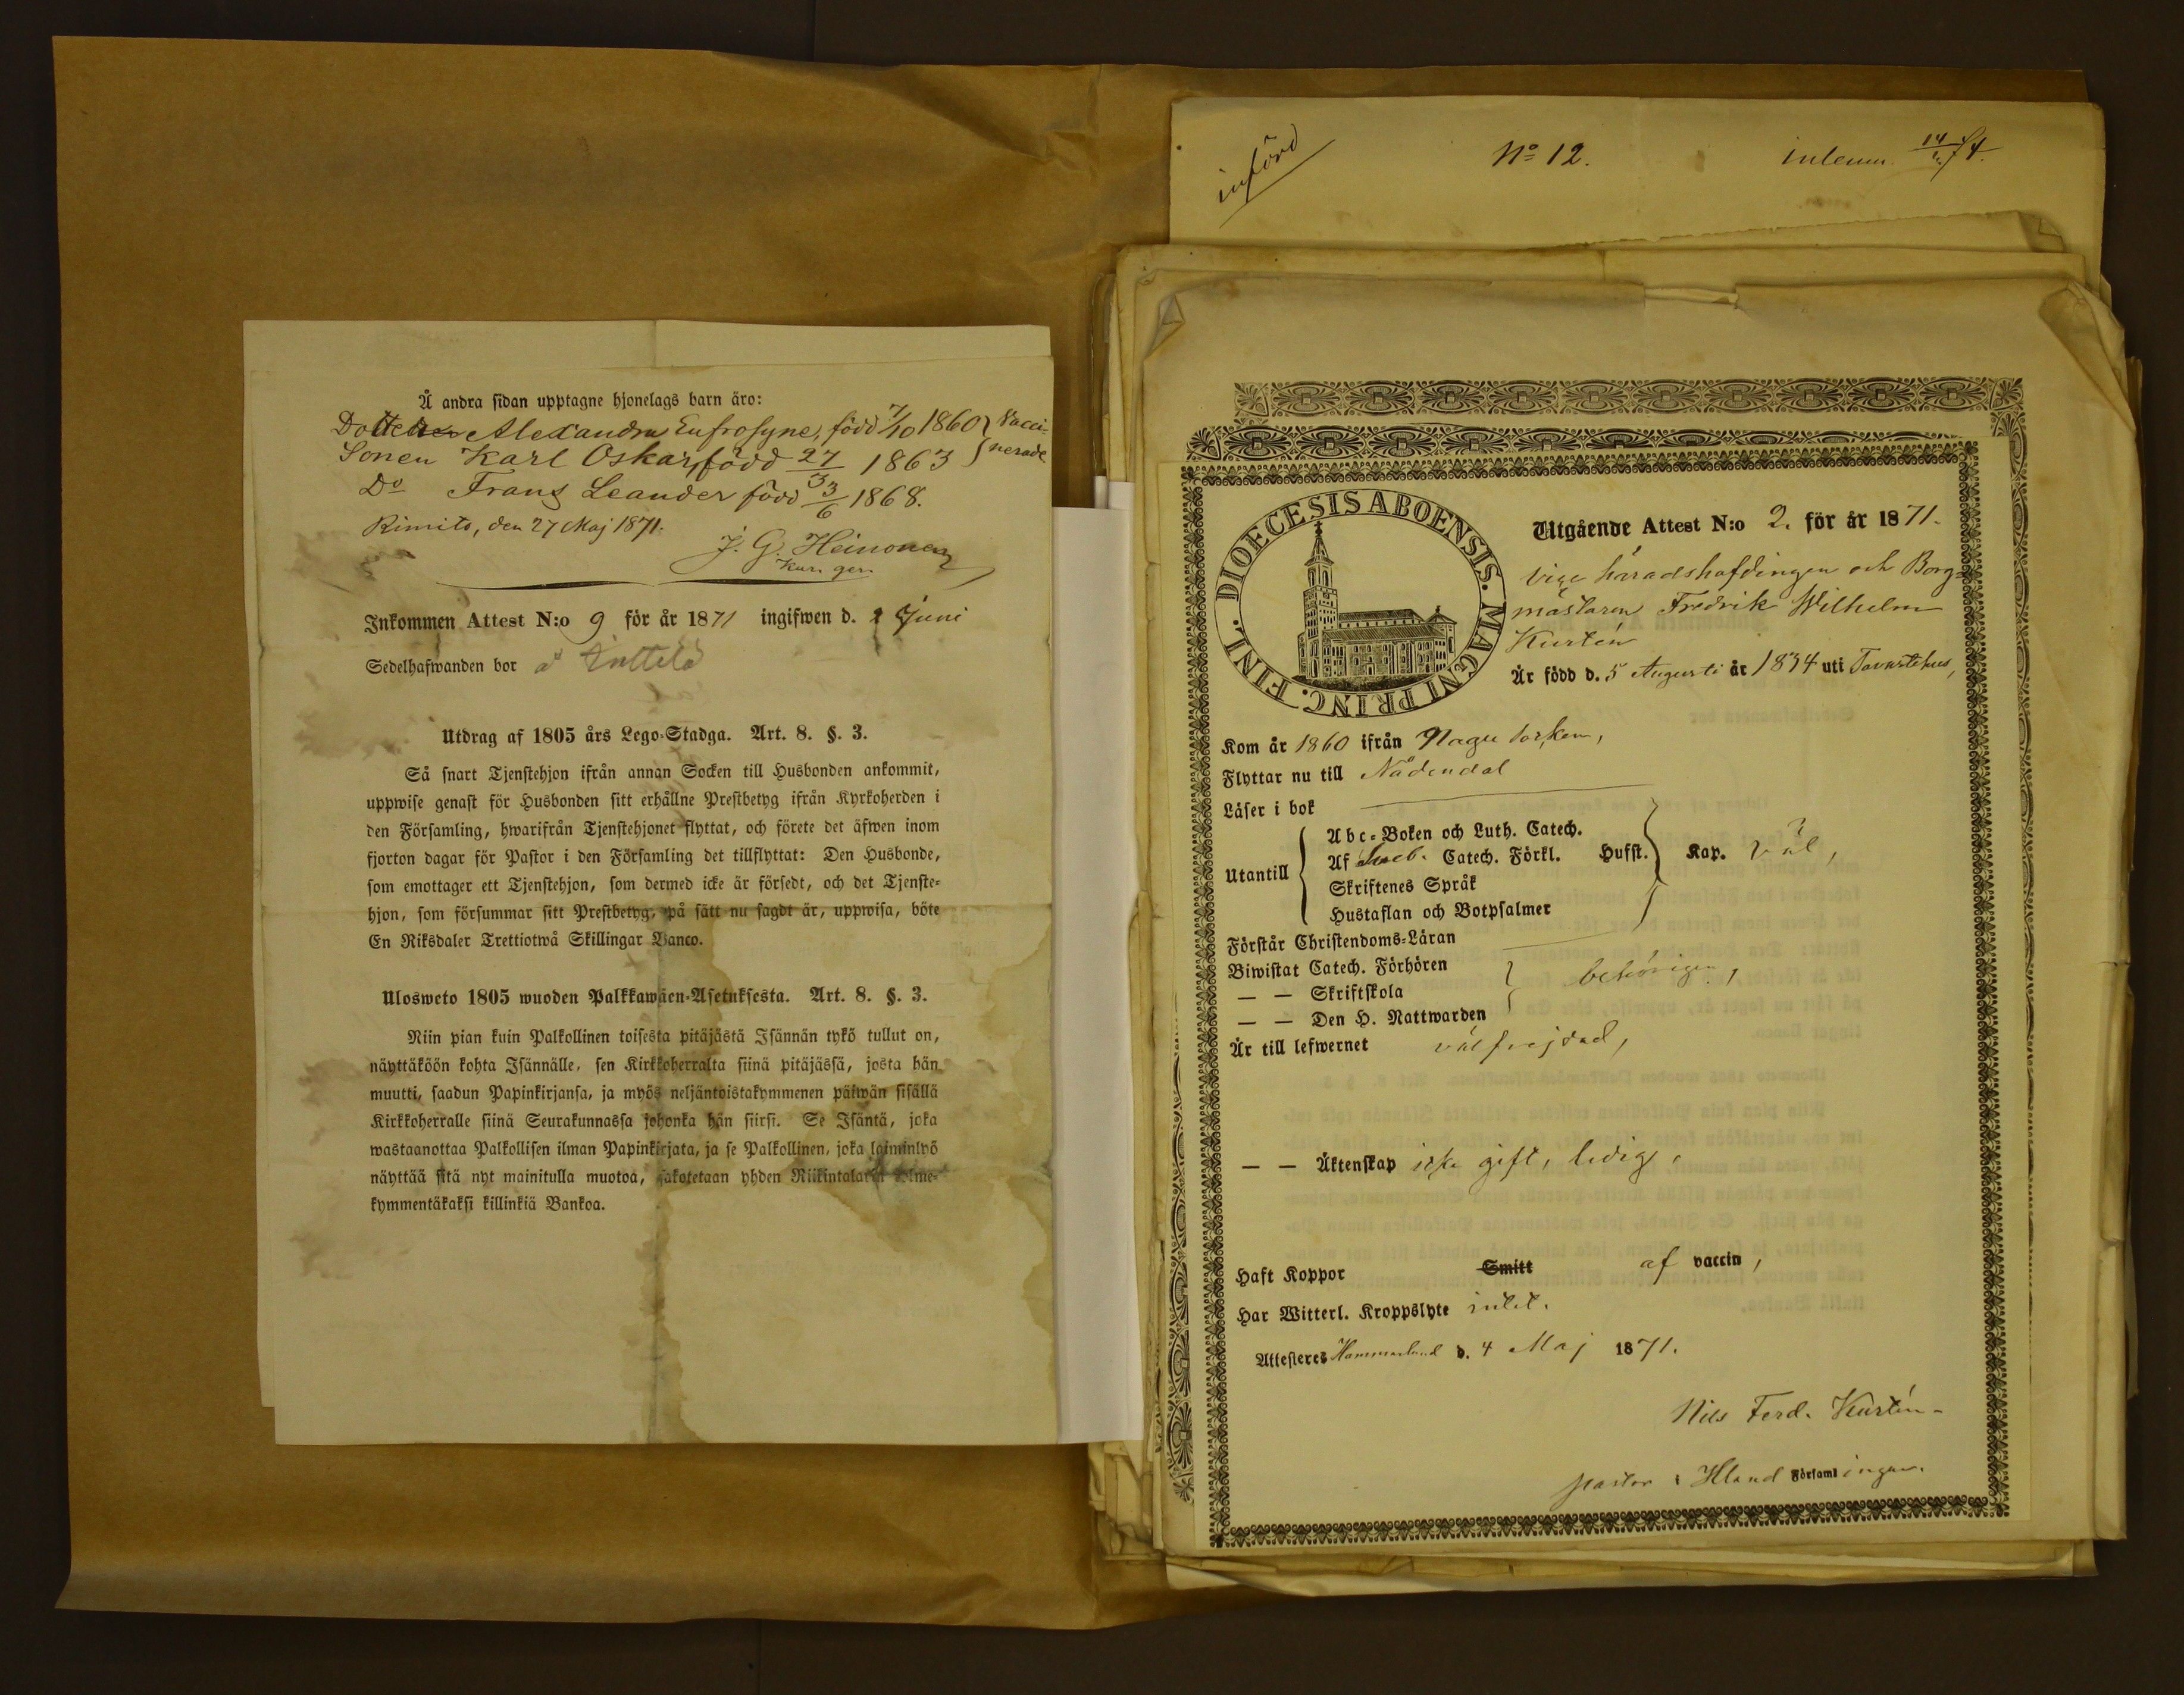 Å andra sidan upptagne hjonelags barn äro:
Dotteren Alexandra Eufrosyne, född 7/10 1860 } Vacci-
Sonen Karl Oskar, född 27/3 1863 } nerade
Do Frans Leander född 3/6 1868.
Rimito, den 27 Maj 1871.
J. G. Heinonen
Inkommen Attest N:o 9 för år 1871 ingifwen d. 2 Juni
Sedelhafwanden bor å
Utdrag af 1805 års Lego-Stadga. Art. 8. §. 3.
Så snart Tjenstehjon ifrån annan Socken till Husbonden ankommit,
uppwise genast för Husbonden sitt erhållne Prestbetyg ifrån Kyrkoherden i
den Församling, hwarifrån Tjenstehjonet flyttat, och förete det äfwen inom
fjorton dagar för Pastor i den Församling det tillflyttat: Den Husbonde,
som emottager ett Tjenstehjon, som dermed icke är försedt, och det Tjenste-
hjon, som försummar sitt Prestbetyg, på sätt nu sagdt är, uppwisa, böte
En Riksdaler Trettiotwå Skillingar Banco.
Ulosweto 1805 wuoden Palkkawäen-Asetuksesta. Art. 8. §. 3.
Niin pian kuin Palkollinen toisesta pitäjästä Isännän tykö tullut on,
näyttäköön kohta Isännälle, sen Kirkkoherralta siinä pitäjässä, josta hän
muutti, saadun Papinkirjansa, ja myös neljäntoistakymmenen päiwän sisällä
Kirkkoherralle siinä Seurakunnassa johonka hän siirsi. Se Isäntä, joka
wastaanottaa Palkollisen ilman Papinkirjata, ja se Palkollinen, joka laiminlyö
näyttää sitä nyt mainitulla muotoa, sakotetaan yhden Riikintalarin kolme-
kymmentäkaksi killinkiä Bankoa.
införd
No 12.
inlemn.
DIOECESIS ABOENSIS. MAGNI PRINC. FINL.
Utgående Attest N:o 2. för år 1871.
Vice häradshöfdingen och Borg-
mästaren Fredrik Wilhelm
Kurtén
Är född d. 5 Augusti år 1834 uti Tavastehus,
Kom år 1860 ifrån Nagu socken,
Flyttar nu till Nådendal
Läser i bok
Utantill
Abc-Boken och Luth. Catech.
Af Sveb. Catech. Förkl. Husst. Kap. väl,
Skriftenes Språk
Hustaflan och Botpsalmer
Förstår Christendoms-Läran
Biwistat Catech. Förhören
— — Skriftskola behörigen,
— — Den H. Nattwarden
Är till lefwernet välfrejdad,
— — Äktenskap icke gift, ledig,
Haft Koppor Smitt af vaccin,
Har Witterl. Kroppslyte intet.
Attesteres Hammarland d. 4 Maj 1871.
Nils Ferd. Kurtén
pastor i Hland Församlingen.